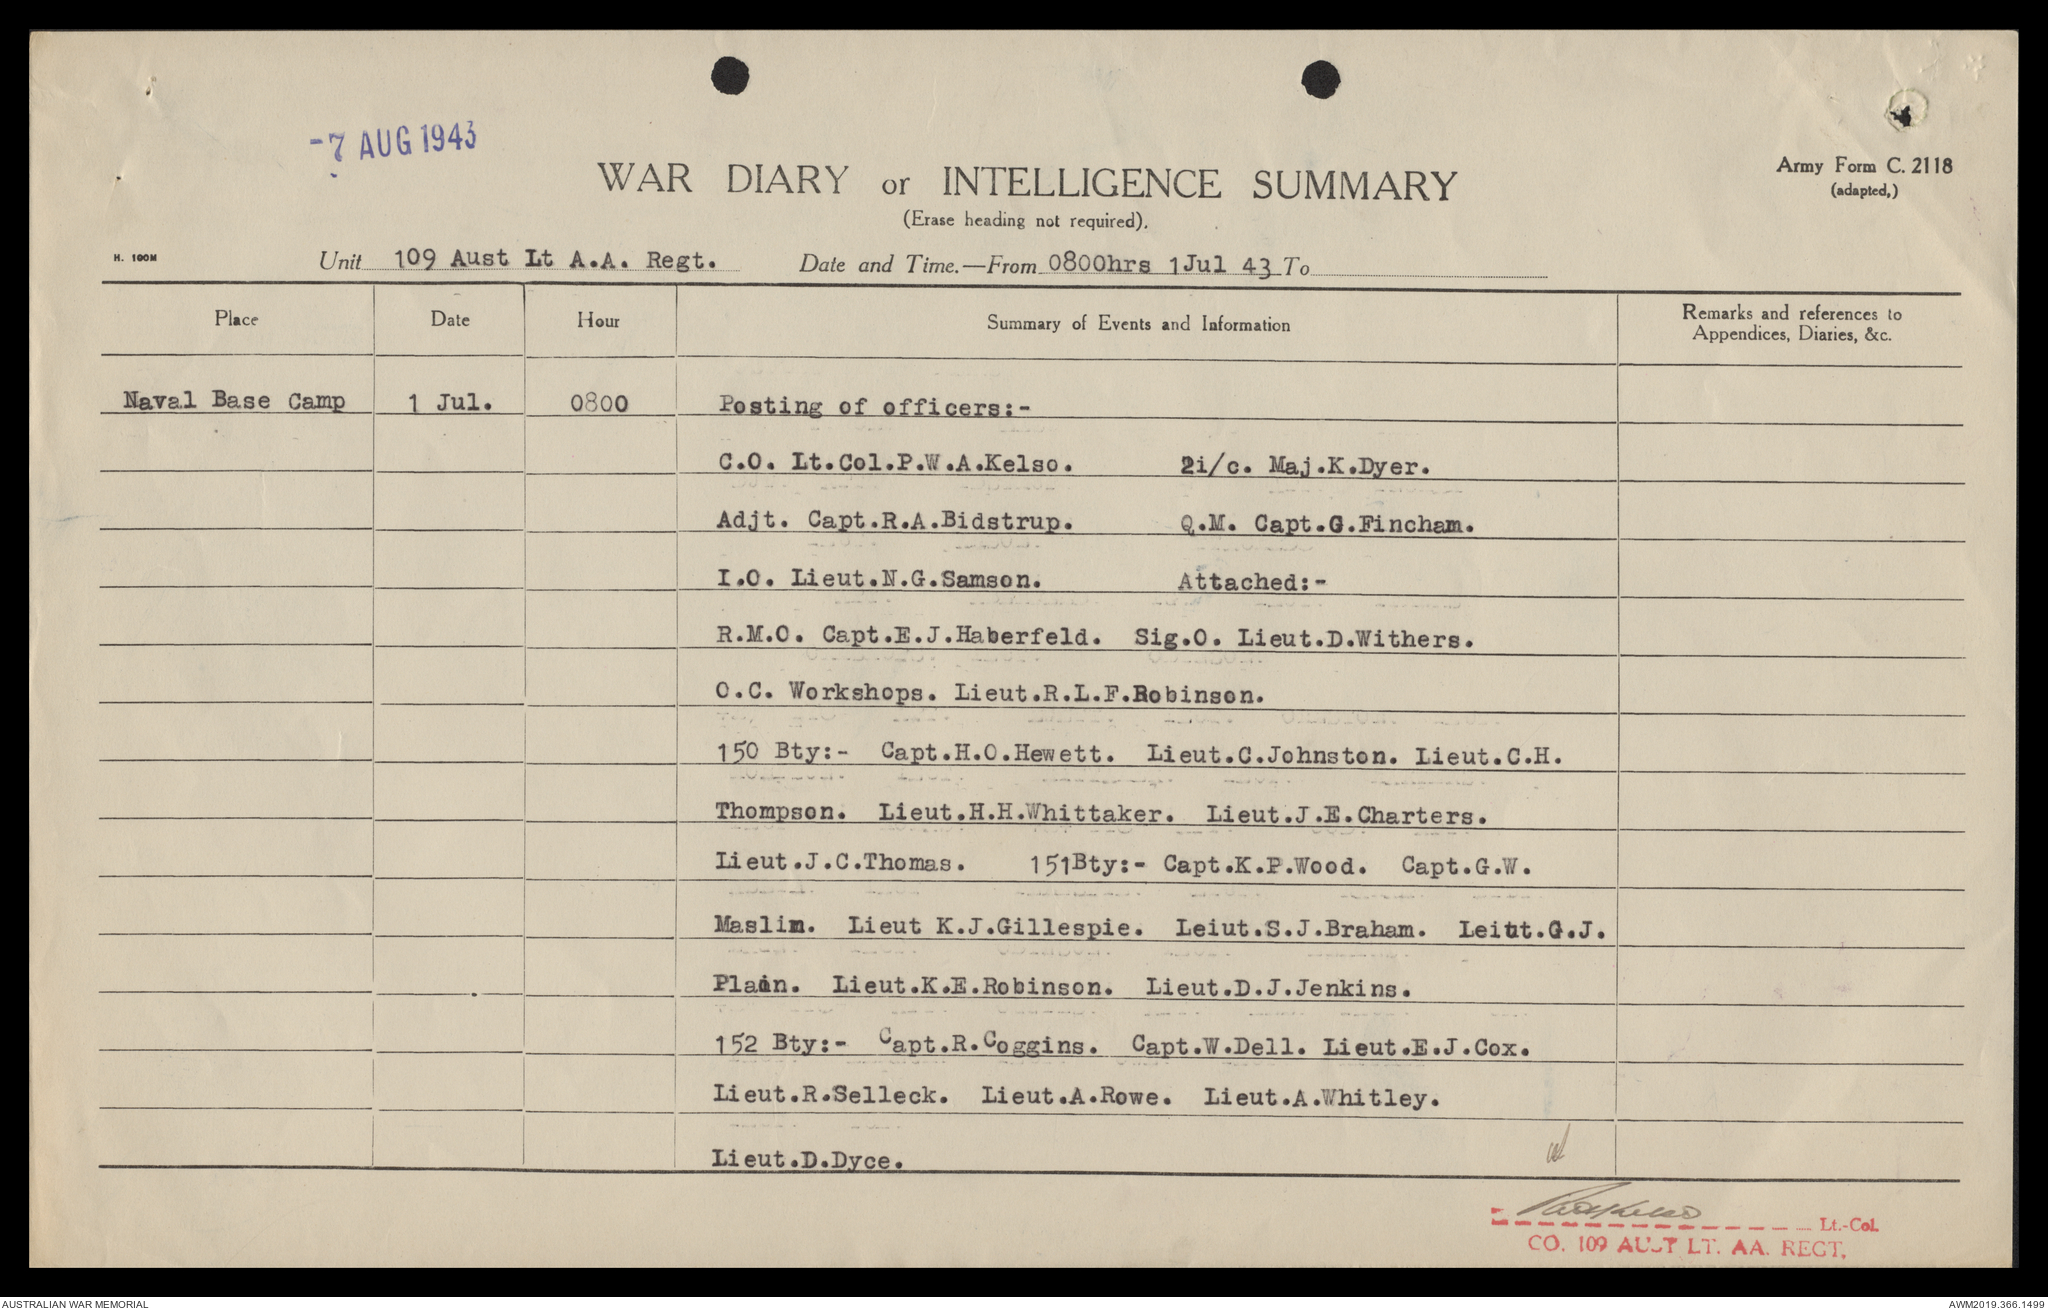 -7 AUG 1943
WAR DIARY or INTELLIGENCE SUMMARY
(Erase heading not required).
Army Form C. 2118
(adapted,)
H. 100M
Unit 109 Aust Lt A.A. Regt. Date and Time.—From 0800hrs 1Jul 43 To
Place Date Hour Summary of Events and Information Remarks and references to
Appendices, Diaries, &c.
Naval Base Camp 1 Jul. 0800 Posting of officers:-
C.O. Lt.Col.P.W.A.Kelso. 2i/c. Maj.K.Dyer.
Adjt. Capt.R.A.Bidstrup. Q.M. Capt.G.Fincham.
I.O. Lieut.N.G.Samson. Attached:-
R.M.O. Capt.E.J.Haberfeld. Sig.O. Lieut.D.Withers.
O.C. Workshops. Lieut.R.L.F.Robinson.
150 Bty:- Capt.H.O.Hewett. Lieut.C.Johnston. Lieut.C.H.
Thompson. Lieut.H.H.Whittaker. Lieut.J.E.Charters.
Lieut.J.C.Thomas. 151Bty:- Capt.K.P.Wood. Capt.G.W.
Maslin. Lieut K.J.Gillespie. Leiut.S.J.Braham. Leiut.G.J.
Plain. Lieut.K.E.Robinson. Lieut.D.J.Jenkins.
152 Bty:- Capt.R.Coggins. Capt.W.Dell. Lieut.E.J.Cox.
Lieut.R.Selleck. Lieut.A.Rowe. Lieut.A.Whitley.
Lieut.D.Dyce.
Lt.-Col.
CO. 109 AUST LT. AA. REGT.
AUSTRALIAN WAR MEMORIAL
AWM2019.366.1499